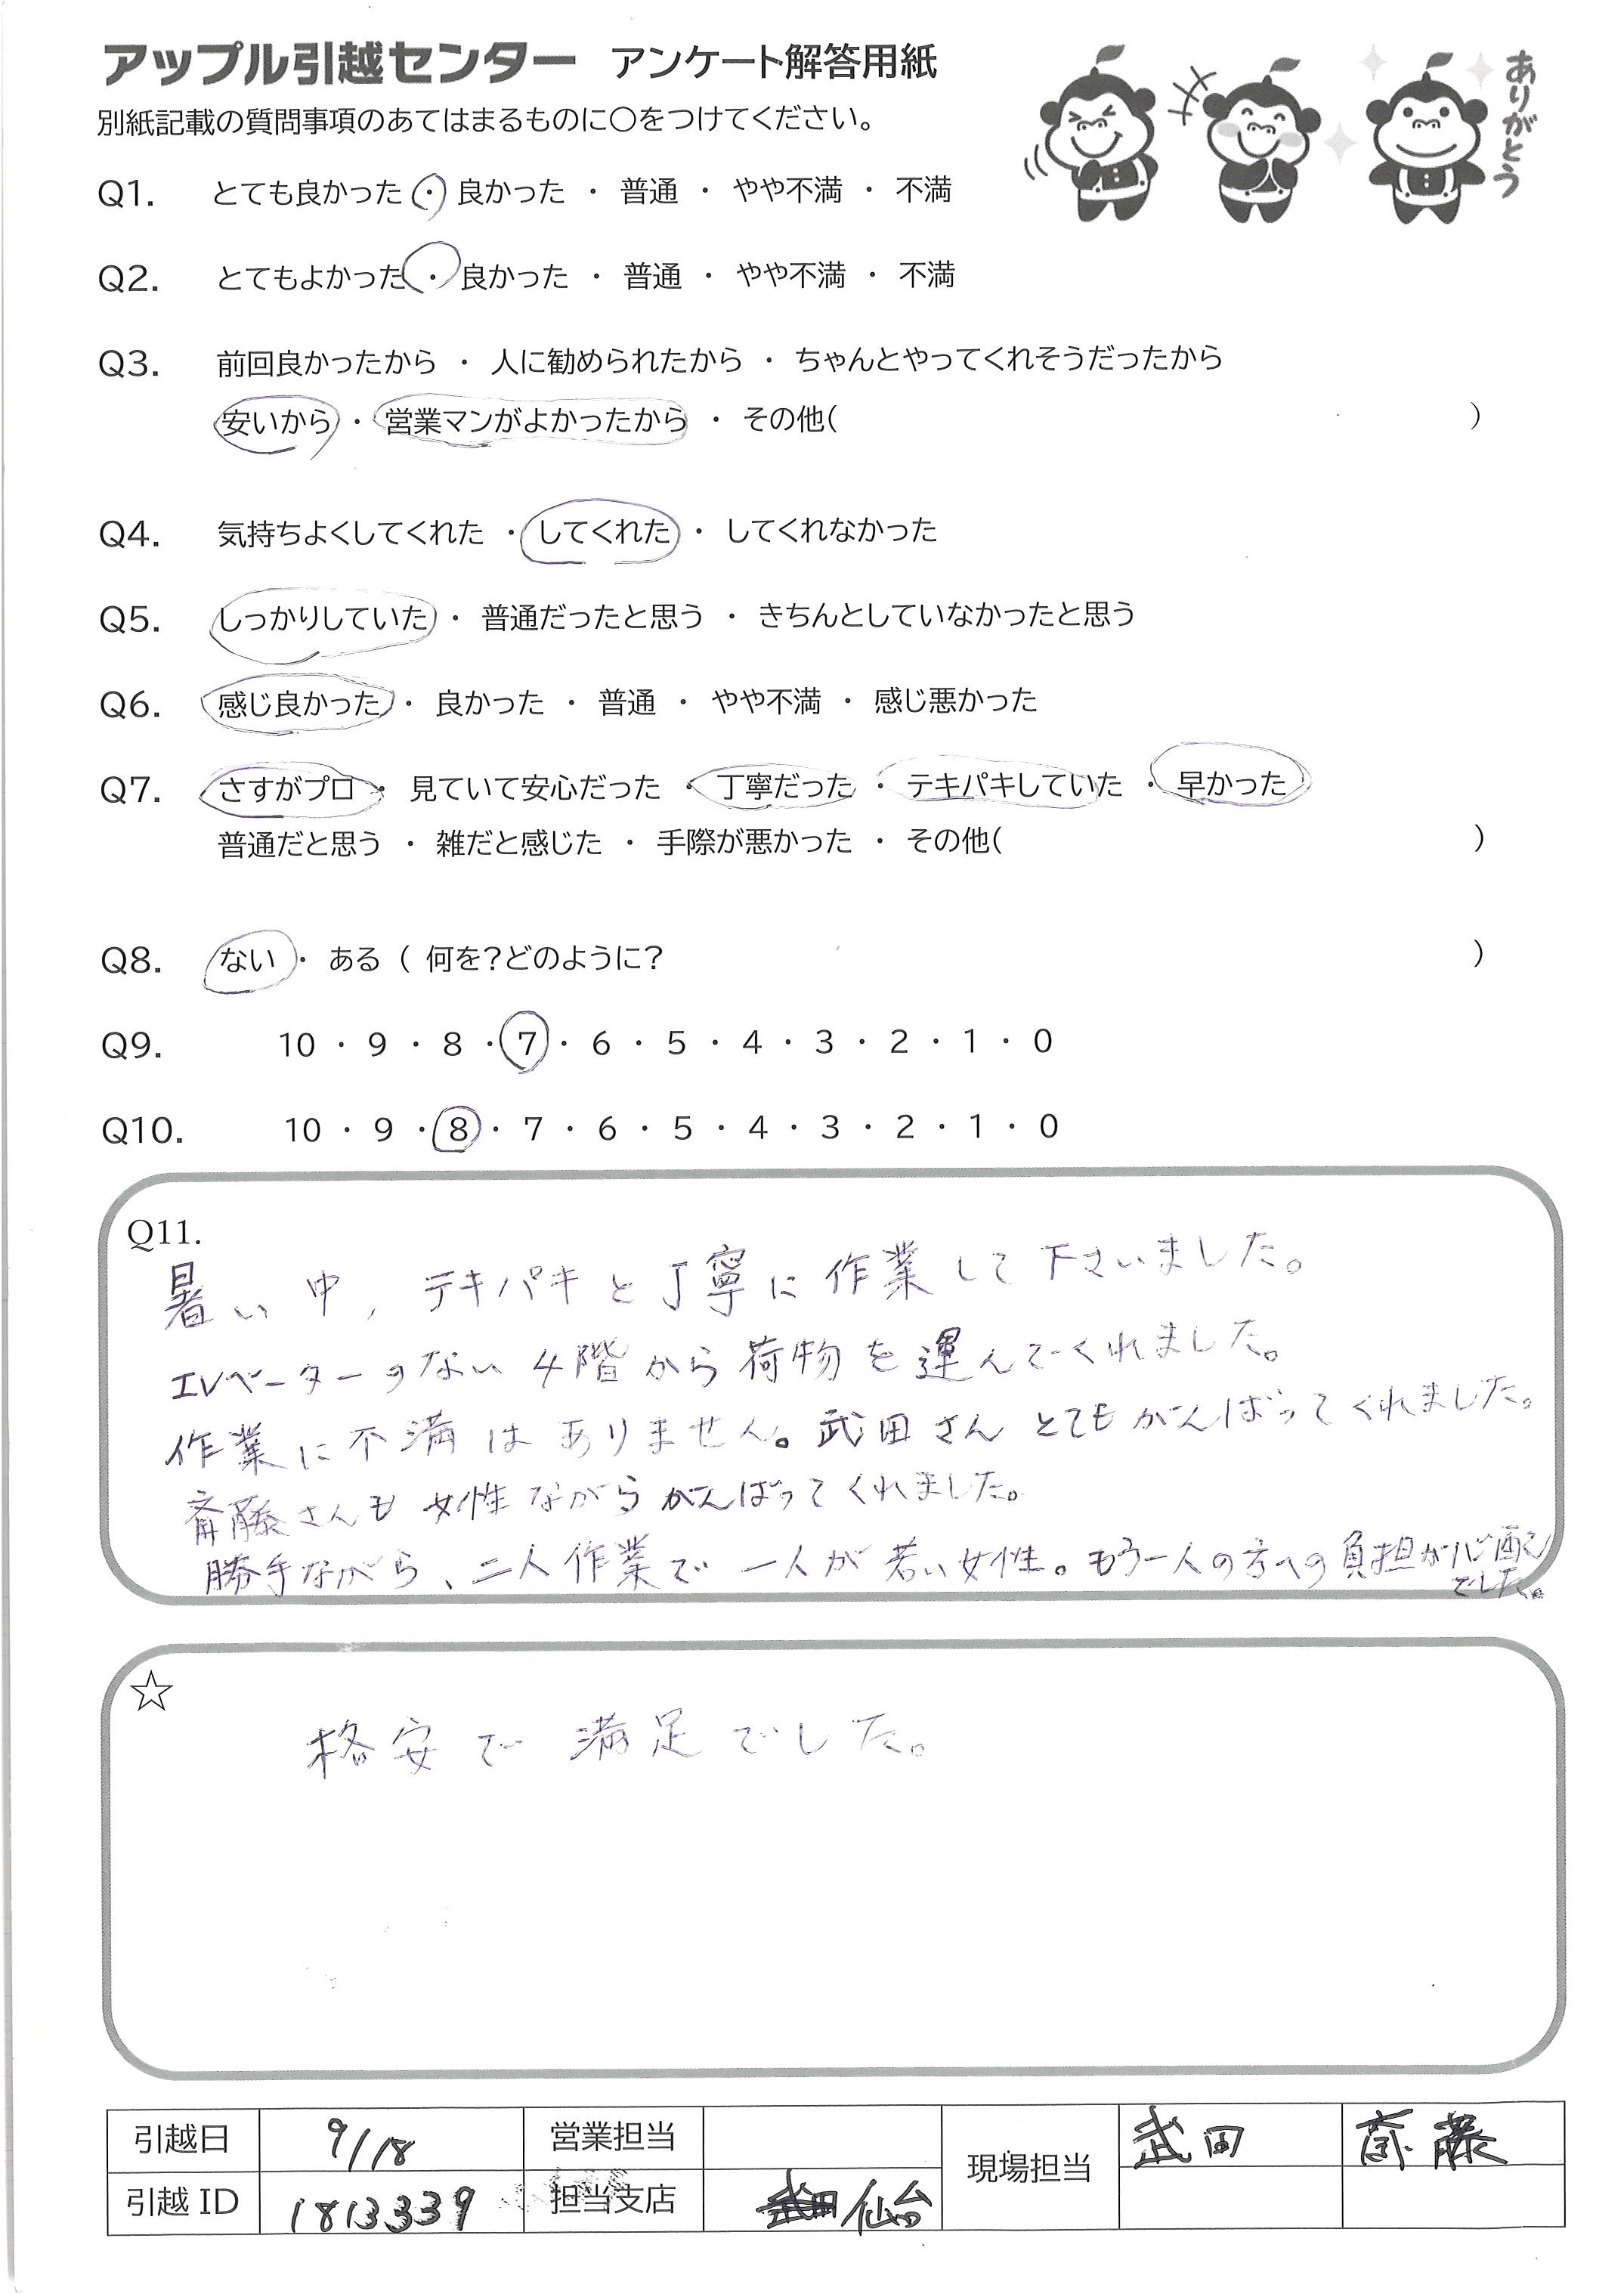 アップル引越センター アンケート解答用紙
ありがとう
別紙記載の質問事項のあてはまるものに〇をつけてください。
Q1. とても良かった ・ 良かった ・ 普通 ・ やや不満 ・ 不満
Q2. とてもよかった ・ 良かった ・ 普通 ・ やや不満 ・ 不満
Q3. 前回良かったから ・ 人に勧められたから ・ ちゃんとやってくれそうだったから
安いから ・ 営業マンがよかったから ・ その他( )
Q4. 気持ちよくしてくれた ・ してくれた ・ してくれなかった
Q5. しっかりしていた ・ 普通だったと思う ・ きちんとしていなかったと思う
Q6. 感じ良かった ・ 良かった ・ 普通 ・ やや不満 ・ 感じ悪かった
Q7. さすがプロ ・ 見ていて安心だった ・ 丁寧だった ・ テキパキしていた ・ 早かった
普通だと思う ・ 雑だと感じた ・ 手際が悪かった ・ その他( )
Q8. ない ・ ある ( 何を?どのように? )
Q9. 10 ・ 9 ・ 8 ・ 7 ・ 6 ・ 5 ・ 4 ・ 3 ・ 2 ・ 1 ・ 0
Q10. 10 ・ 9 ・ 8 ・ 7 ・ 6 ・ 5 ・ 4 ・ 3 ・ 2 ・ 1 ・ 0
Q11.
暑い中, テキパキと丁寧に作業して下さいました。
エレベーターのない4階から荷物を運んでくれました。
作業に不満はありません。武田さんとてもがんばってくれました。
斎藤さんも女性ながらがんばってくれました。
勝手ながら、二人作業で一人が若い女性。もう一人の方への負担が心配
でした。
☆
格安で満足でした。
引越日 9/18 営業担当 現場担当 武田 斎藤
引越 ID 1813339 担当支店 仙台